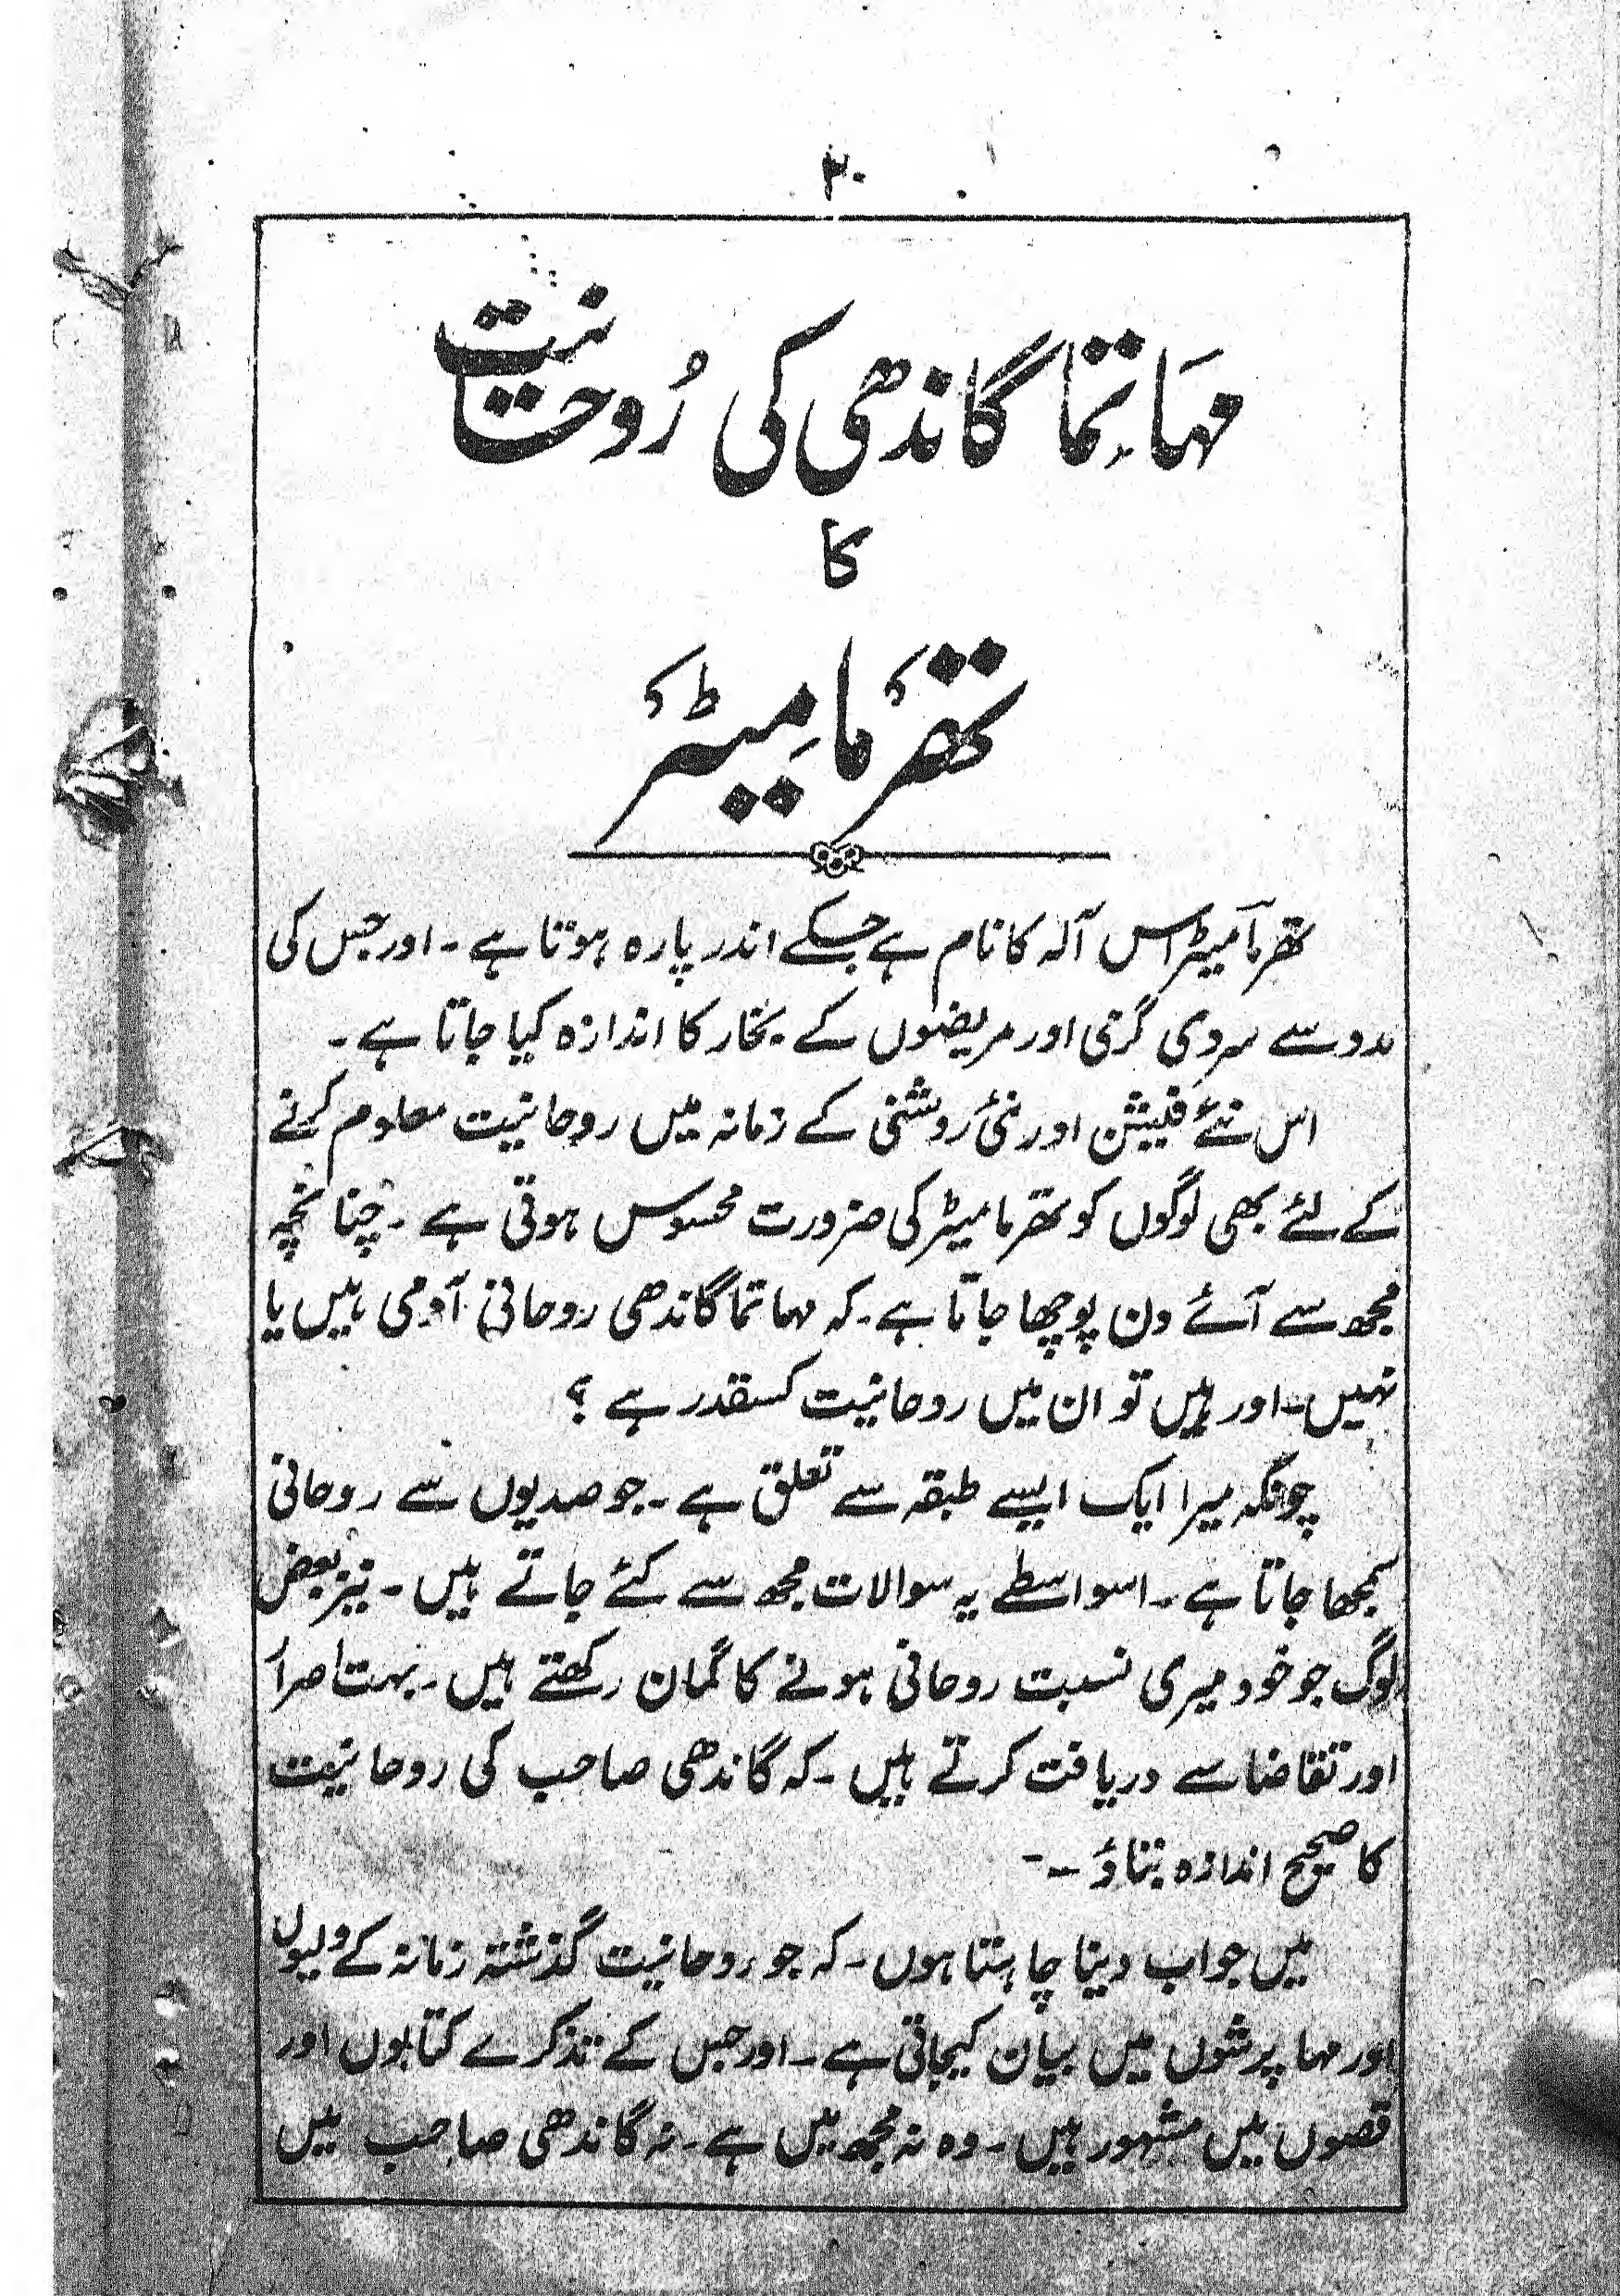 ۲۰
مہاتما گاندھی کی رُوحانیت
کا
تھرمامِیٹر
تھرمامیٹر اس آلہ کا نام ہے جسکے اندر پارہ ہوتا ہے - اور جس کی
مدد سے سردی گرمی اور مریضوں کے بخار کا اندازہ کیا جاتا ہے -
اس نئے فیشن اور نئی روشنی کے زمانہ میں روحانیت معلوم کرنے
کے لئے بھی لوگوں کو تھرمامیٹر کی ضرورت محسوس ہوتی ہے - چنانچہ
مجھ سے آئے دن پوچھا جاتا ہے - کہ مہاتما گاندھی روحانی آدمی ہیں یا
نہیں - اور ہیں تو ان میں روحانیت کسقدر ہے ؟
چونکہ میرا ایک ایسے طبقہ سے تعلق ہے - جو صدیوں سے روحانی
سمجھا جاتا ہے - اسواسطے یہ سوالات مجھ سے کئے جاتے ہیں - نیز بعض
لوگ جو خود میری نسبت روحانی ہونے کا گمان رکھتے ہیں - بہت اصرار
اور تقاضا سے دریافت کرتے ہیں - کہ گاندھی صاحب کی روحانیت
کا صحیح اندازہ بتاؤ - -
میں جواب دینا چاہتا ہوں - کہ جو روحانیت گذشتہ زمانہ کے ولیوں
اور مہا پرشوں میں بیان کیجاتی ہے - اور جس کے تذکرے کتابوں اور
قصوں میں مشہور ہیں - وہ نہ مجھ میں ہے - نہ گاندھی صاحب میں